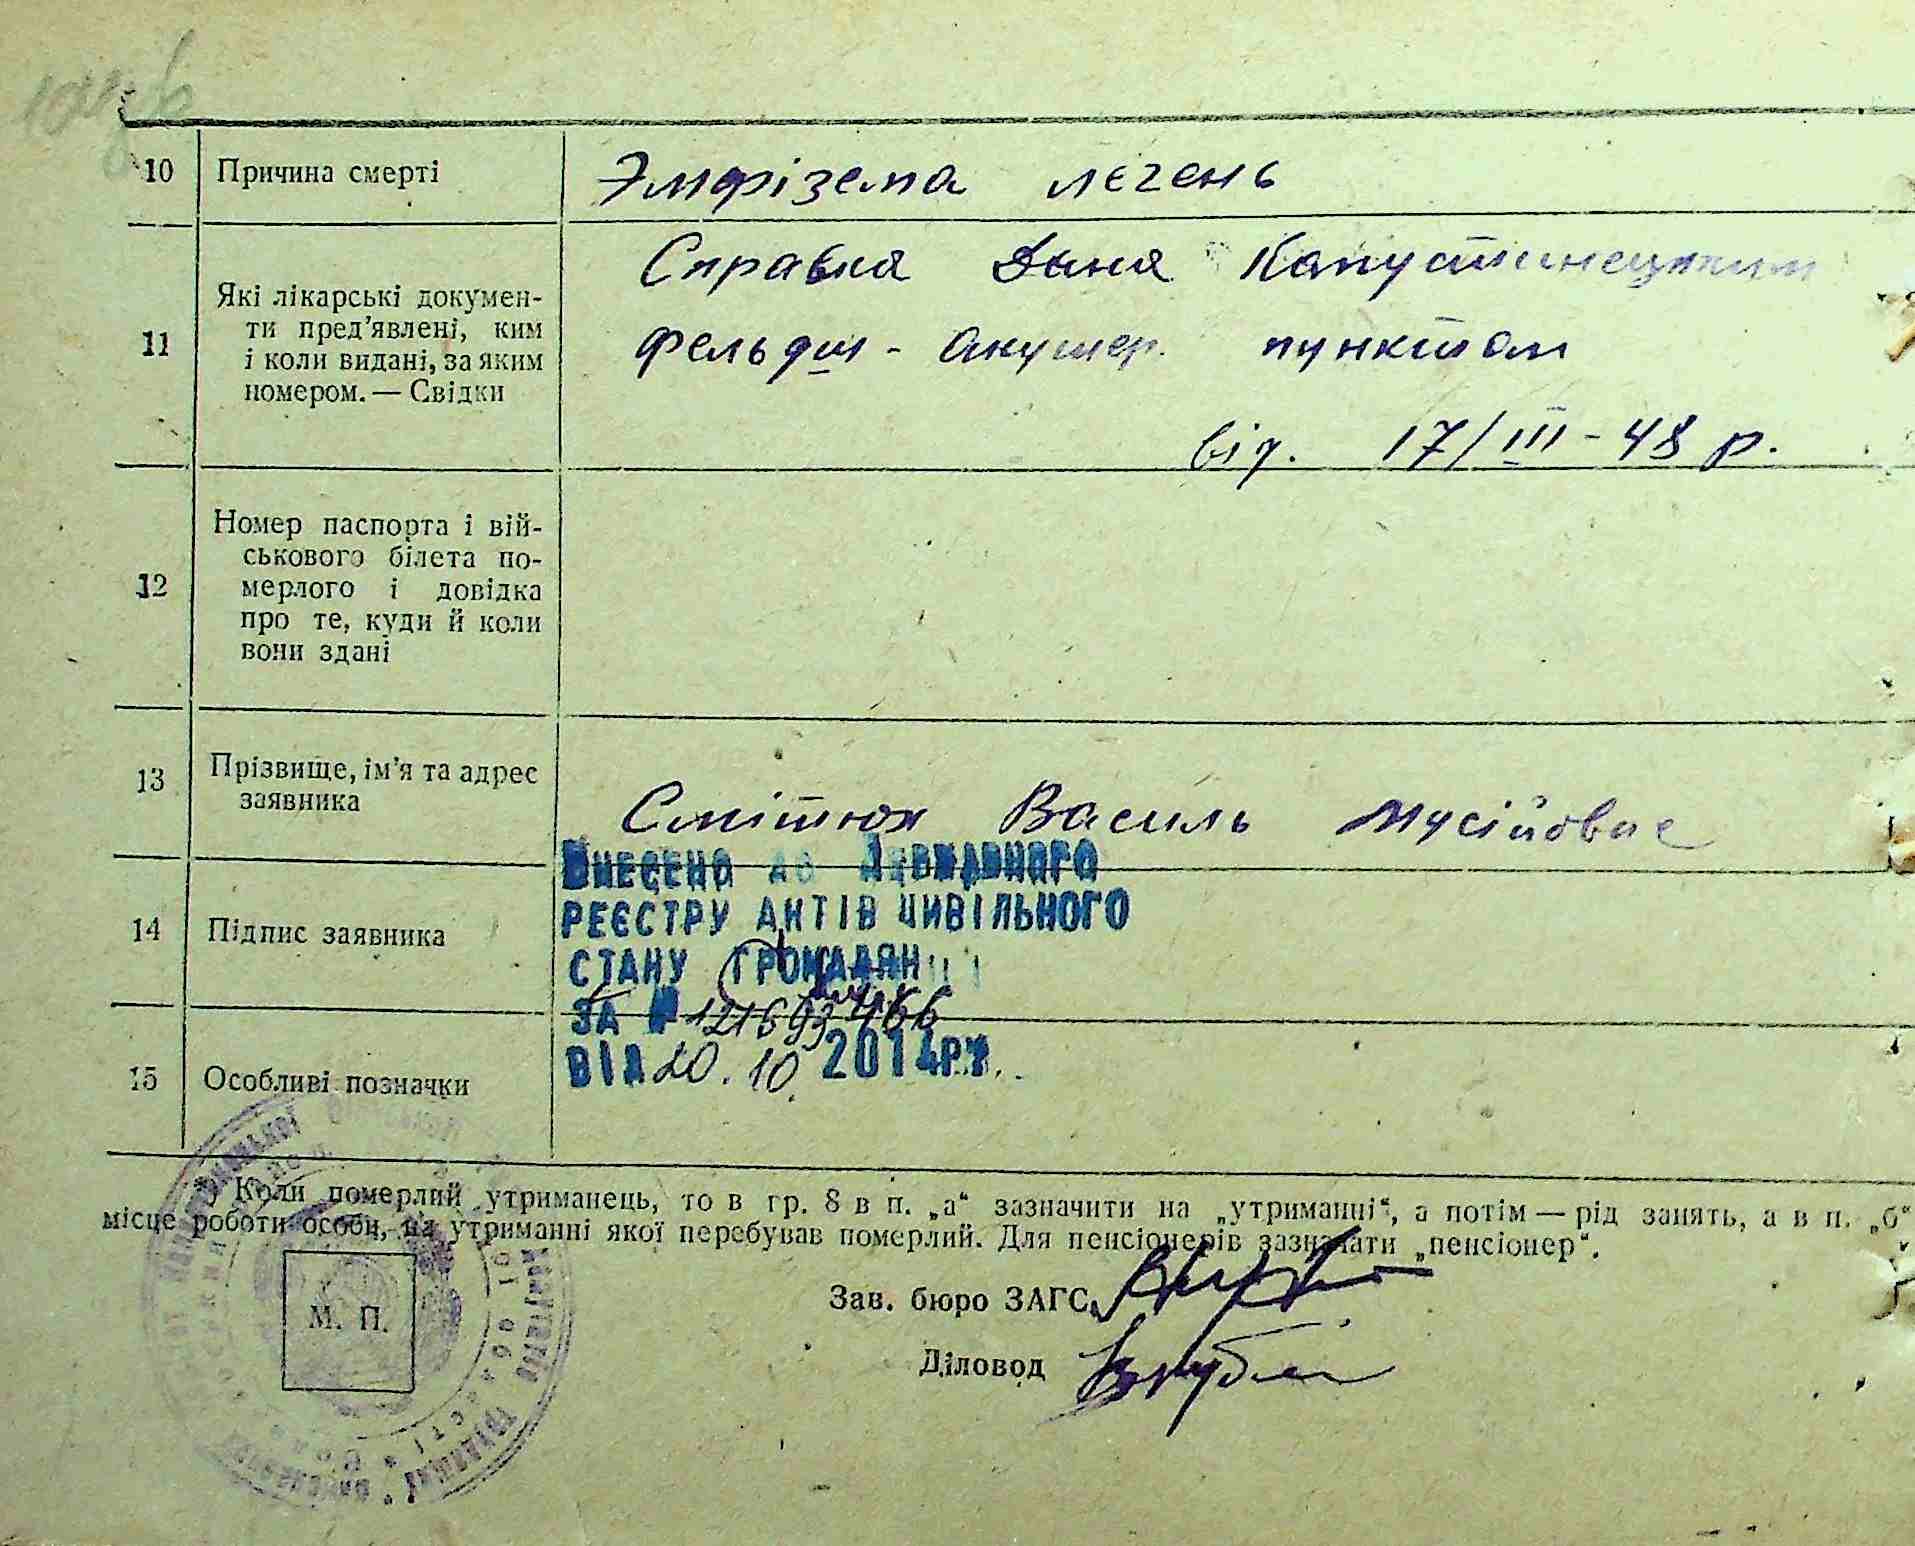 10 Причина смерті Эмфізема лєгень
11 Які лікарські докумен-
ти пред'явлені, ким
і коли видані, за яким
номером. — Свідки
Справка дана Капустинецьким
фельдш - акушер. пунктом
від. 17/III - 48 р.
12 Номер паспорта і вій-
ськового білета по-
мерлого і довідка
про те, куди й коли
вони здані
13 Прізвище, ім'я та адрес
заявника
Смітюх Василь Мусійович
ВНЕСЕНО ДО ДЕРЖАВНОГО
РЕЄСТРУ АКТІВ ЦИВІЛЬНОГО
14 Підпис заявника
СТАНУ ГРОМАДЯН
ЗА №
ВІД 20.10 2014р.
15 Особливі позначки
*) Коли померлий утриманець, то в гр. 8 в п. „а“ зазначити на „утриманні“, а потім — рід занять, а в п. „б“
місце роботи особи, на утриманні якої перебував померлий. Для пенсіонерів зазначати „пенсіонер“.
М. П.
Зав. бюро ЗАГС
Діловод